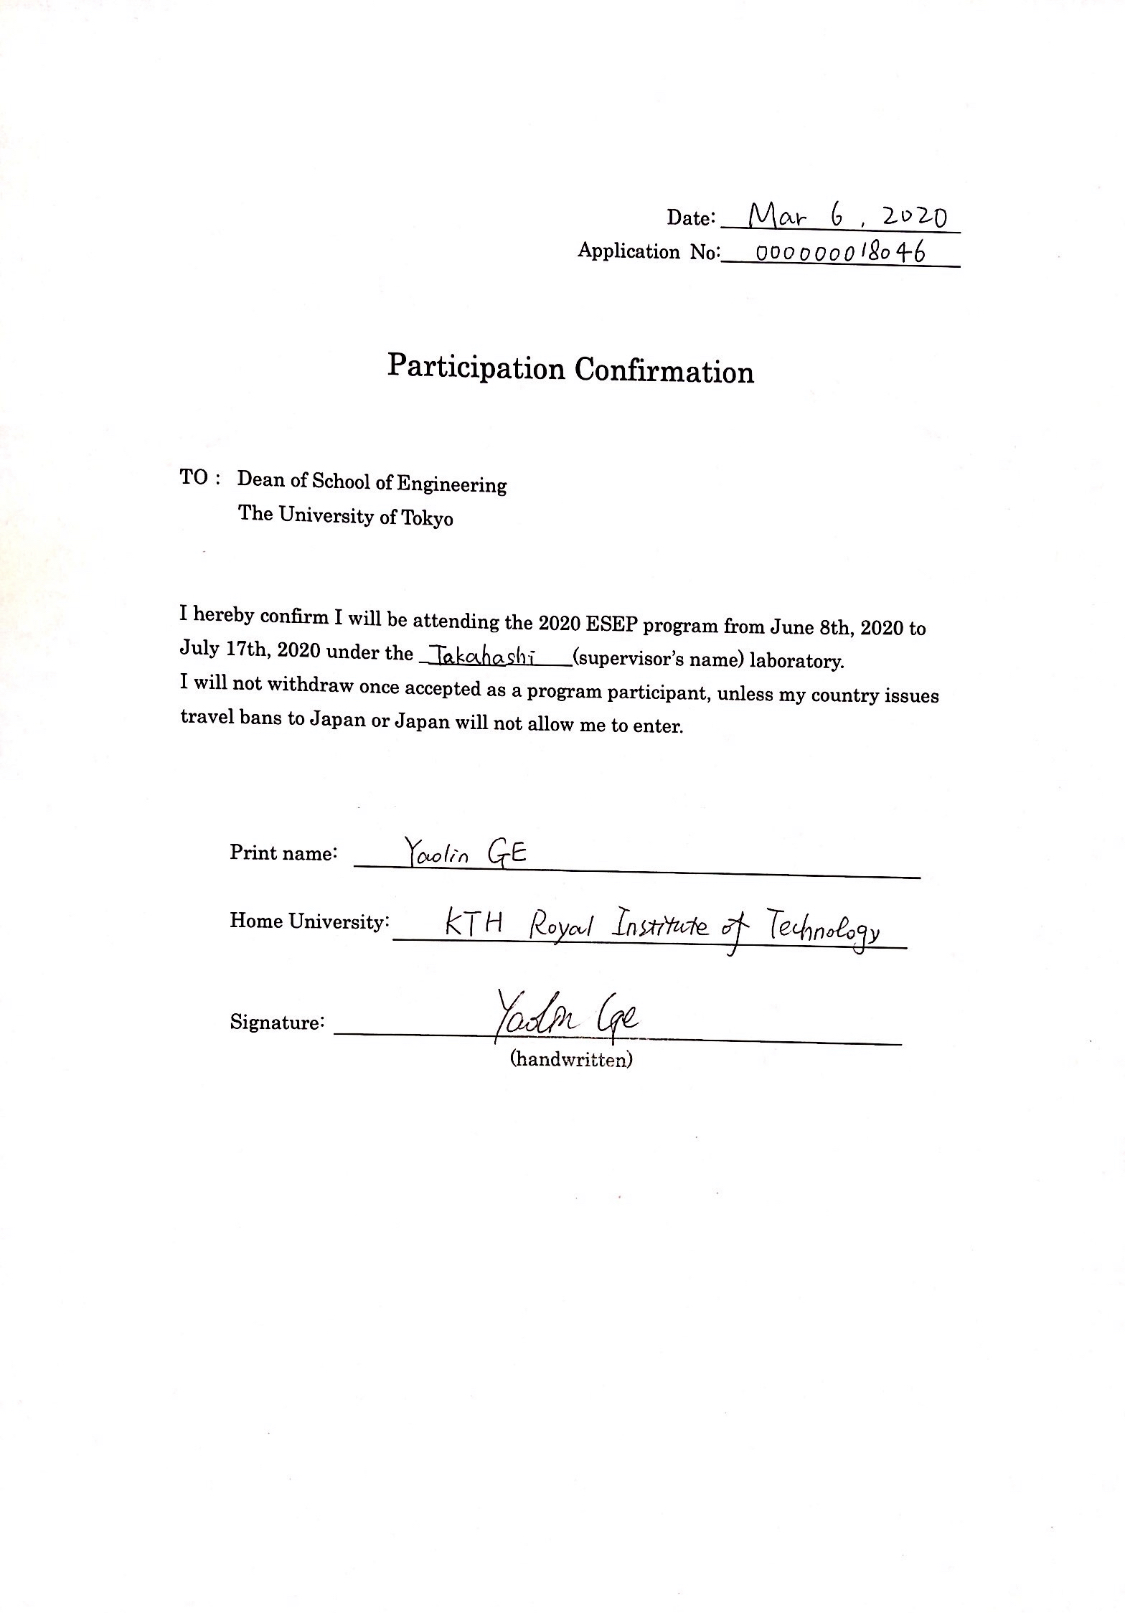 Date: Mar 6, 2020
Application No: 000000018046
Participation Confirmation
TO : Dean of School of Engineering
The University of Tokyo
I hereby confirm I will be attending the 2020 ESEP program from June 8th, 2020 to
July 17th, 2020 under the Takahashi (supervisor's name) laboratory.
I will not withdraw once accepted as a program participant, unless my country issues
travel bans to Japan or Japan will not allow me to enter.
Print name: Yaolin GE
Home University: KTH Royal Institute of Technology
Signature: Yaolin Ge
(handwritten)